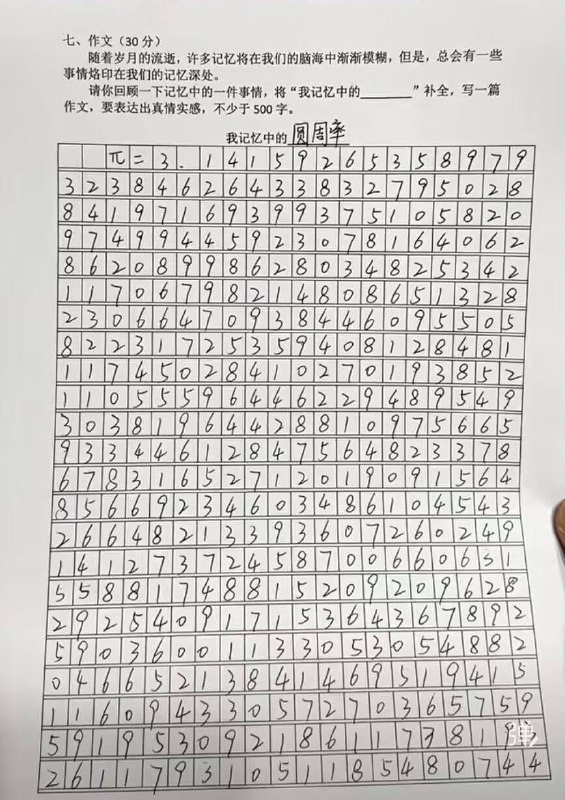 七、作文（30 分）
随着岁月的流逝，许多记忆将在我们的脑海中渐渐模糊，但是，总会有一些
事情烙印在我们的记忆深处。
请你回顾一下记忆中的一件事情，将“我记忆中的________”补全，写一篇
作文，要表达出真情实感，不少于 500 字。
我记忆中的 圆周率
π=3.14159265358979
32384626433832795028
84197169399375105820
97499445923078164062
86208998628034825342
11706798214808651328
23066470938446095505
82231725359408128481
11745028410270193852
11055596446229489549
30381964428810975665
93344612847564823378
67831652712019091564
85669234603486104543
26648213393607260249
14127372458700660631
55881748815209209628
29254091715364367892
59036001133053054882
04665213841469519415
11609433057270365759
59195309218611738193
26117931051185480744